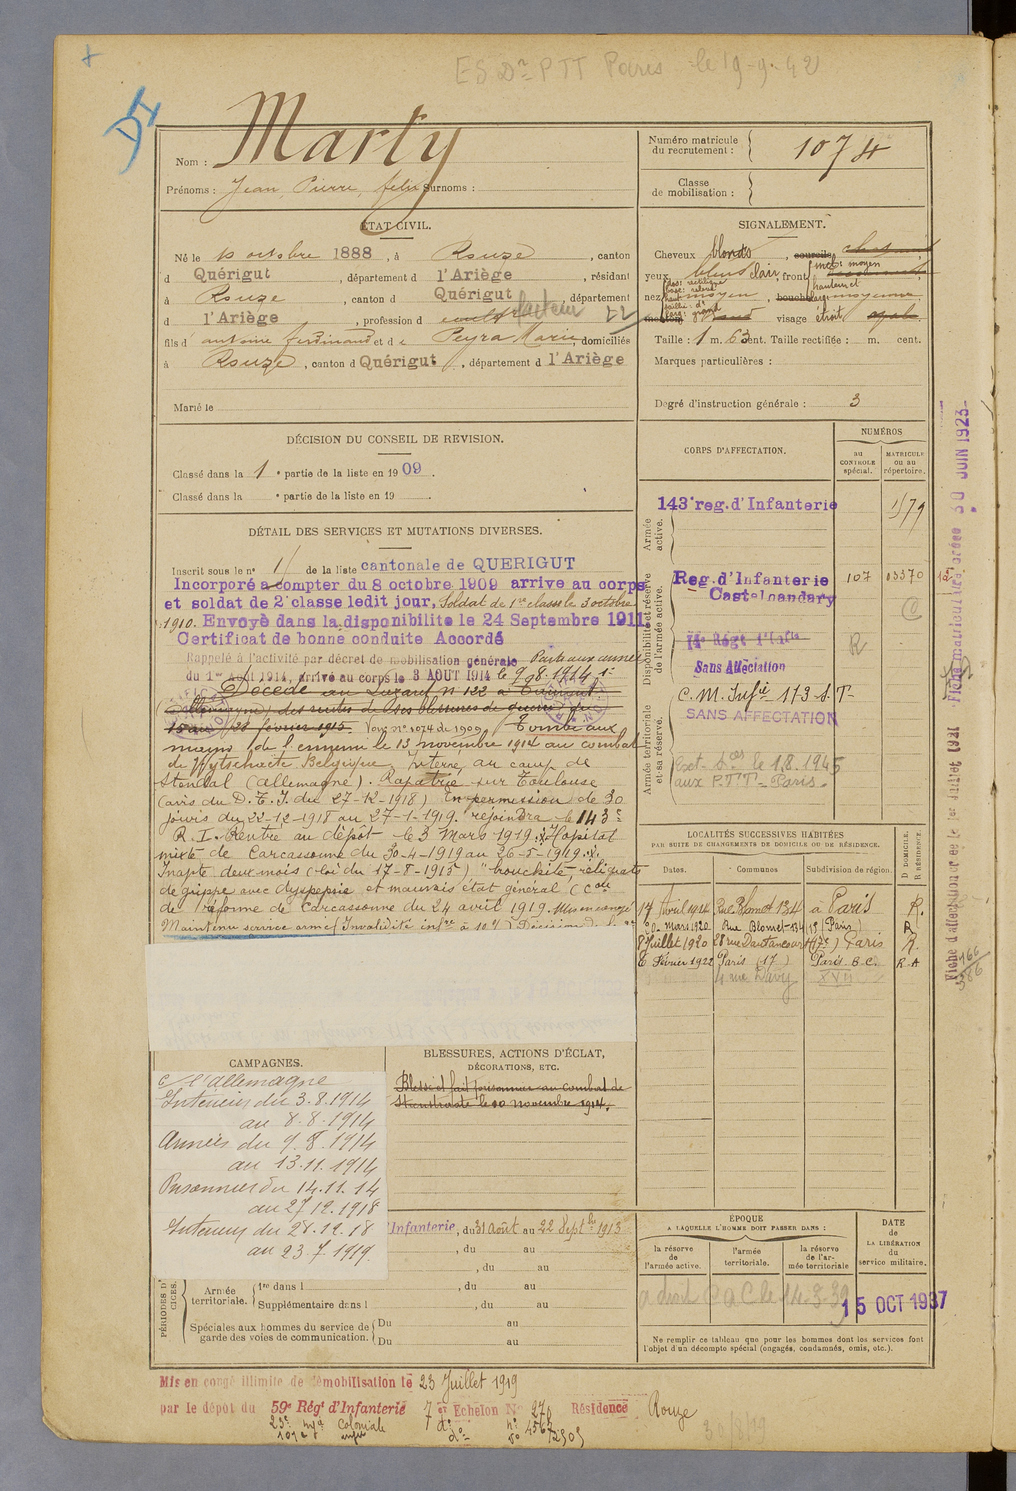 ES Dn PTT Paris le 19-9-42
DI
Nom : Marty
Prénoms : Jean Pierre, felix Surnoms :
Numéro matricule du recrutement : 1074
Classe de mobilisation :
ÉTAT CIVIL.
Né le 10 octobre 1888, à Rouze, canton
d Quérigut, département d l'Ariège, résidant
à Rouze, canton d Quérigut, département
d l'Ariège, profession d facteur 22
fils d antoine ferdinand et d e Peyra Marie, domiciliés
à Rouze, canton d Quérigut, département d l'Ariège
Marié le
SIGNALEMENT.
Cheveux blonds, sourcils
yeux bleus clair, front inc: moyen
nez moyen, bouche moyenne
menton visage étroit
Taille : 1 m. 63 cent. Taille rectifiée : m. cent.
Marques particulières :
Degré d'instruction générale : 3
DÉCISION DU CONSEIL DE REVISION.
Classé dans la 1e partie de la liste en 1909.
Classé dans la e partie de la liste en 19
DÉTAIL DES SERVICES ET MUTATIONS DIVERSES.
Inscrit sous le n° 1 de la liste cantonale de QUERIGUT
Incorporé a compter du 8 octobre 1909 arrive au corps
et soldat de 2e classe ledit jour, Soldat de 1re classe le 3 octobre
1910. Envoyé dans la disponibilite le 24 Septembre 1911.
Certificat de bonne conduite Accordé
Rappelé à l'activité par décret de mobilisation générale Parti aux armées
du 1er Août 1914, arrivé au corps le 3 AOUT 1914 le 9.8.1914
Décédé au Lazaret n° 122 à
(Allemagne) des suites de ses blessures de guerre
15 au 28 février 1915. n° 1074 de 1909 Tombé aux
mains de l'ennemi le 13 novembre 1914 au combat
de Wytschaete Belgique, Interné au camp de
Stendal (allemagne). Rapatrié sur Toulouse
(avis du D. T. I. du 27-12-1918) En permission de 30
jours du 22-12-1918 au 27-1-1919. rejoindra le 143e
R. I. Rentré au dépôt le 3 Mars 1919. Hopital
mixte de Carcassonne du 30-4-1919 au 26-5-1919.
Inapte deux mois (loi du 17-8-1915) "bronchite, reliquats
de grippe avec dyspepsie et mauvais état général (Con
de réforme de Carcassonne du 24 avril 1919. Mis en congé
Maintenu service armé Invalidité infre à 10%) Décision
CORPS D'AFFECTATION.
NUMÉROS
au CONTROLE spécial.
MATRICULE ou au répertoire.
Armée active.
143e reg. d'Infanterie 1179
Disponibilité et réserve de l'armée active.
Reg. d'Infanterie 107 03370
Castelnaudary
Sans Affectation
R
Armée territoriale et sa réserve.
C. M. Infie 173 S.T.
SANS AFFECTATION
le 1.8.1945
aux P.T.T. Paris.
LOCALITÉS SUCCESSIVES HABITÉES
PAR SUITE DE CHANGEMENTS DE DOMICILE OU DE RÉSIDENCE.
Dates. Communes Subdivision de région. D DOMICILE. R RÉSIDENCE.
17 Avril 1914 Rue Blomet 134 à Paris R.
20 mars 1920 Rue Blomet 134 15 (Paris)
8 Juillet 1920 28 rue Dautancourt (17e) Paris R.
6 Février 1922 Paris (17) Paris. B.C. R.A
4 rue Davy XVII
Fiche matriculaire créée 30 JUIN 1923
CAMPAGNES.
c/ l'allemagne
Intérieur du 3.8.1914
au 8.8.1914
Armées du 9.8.1914
au 13.11.1914
Prisonnier du 14.11.14
au 27.12.1918
Intérieur du 28.12.18
au 23.7.1919.
BLESSURES, ACTIONS D'ÉCLAT,
DÉCORATIONS, ETC.
Blessé et fait prisonnier au combat de
le 10 novembre 1914.
Infanterie, du 31 Août au 22 Septbre 1913
, du au
, du au
Armée territoriale. 1re dans l , du au
Supplémentaire dans l , du au
Spéciales aux hommes du service de garde des voies de communication. Du au
Du au
ÉPOQUE
A LAQUELLE L'HOMME DOIT PASSER DANS :
la réserve de l'armée active.
l'armée territoriale.
la réserve de l'armée territoriale
DATE de LA LIBÉRATION du service militaire.
a droit C a C le 14.3.39
15 OCT 1937
Ne remplir ce tableau que pour les hommes dont les services font
l'objet d'un décompte spécial (engagés, condamnés, omis, etc.).
Mis en congé illimité de démobilisation le 23 Juillet 1919
par le dépôt du 59e Régt d'Infanterie 7 er Echelon N° Résidence Rouze
23e Coloniale